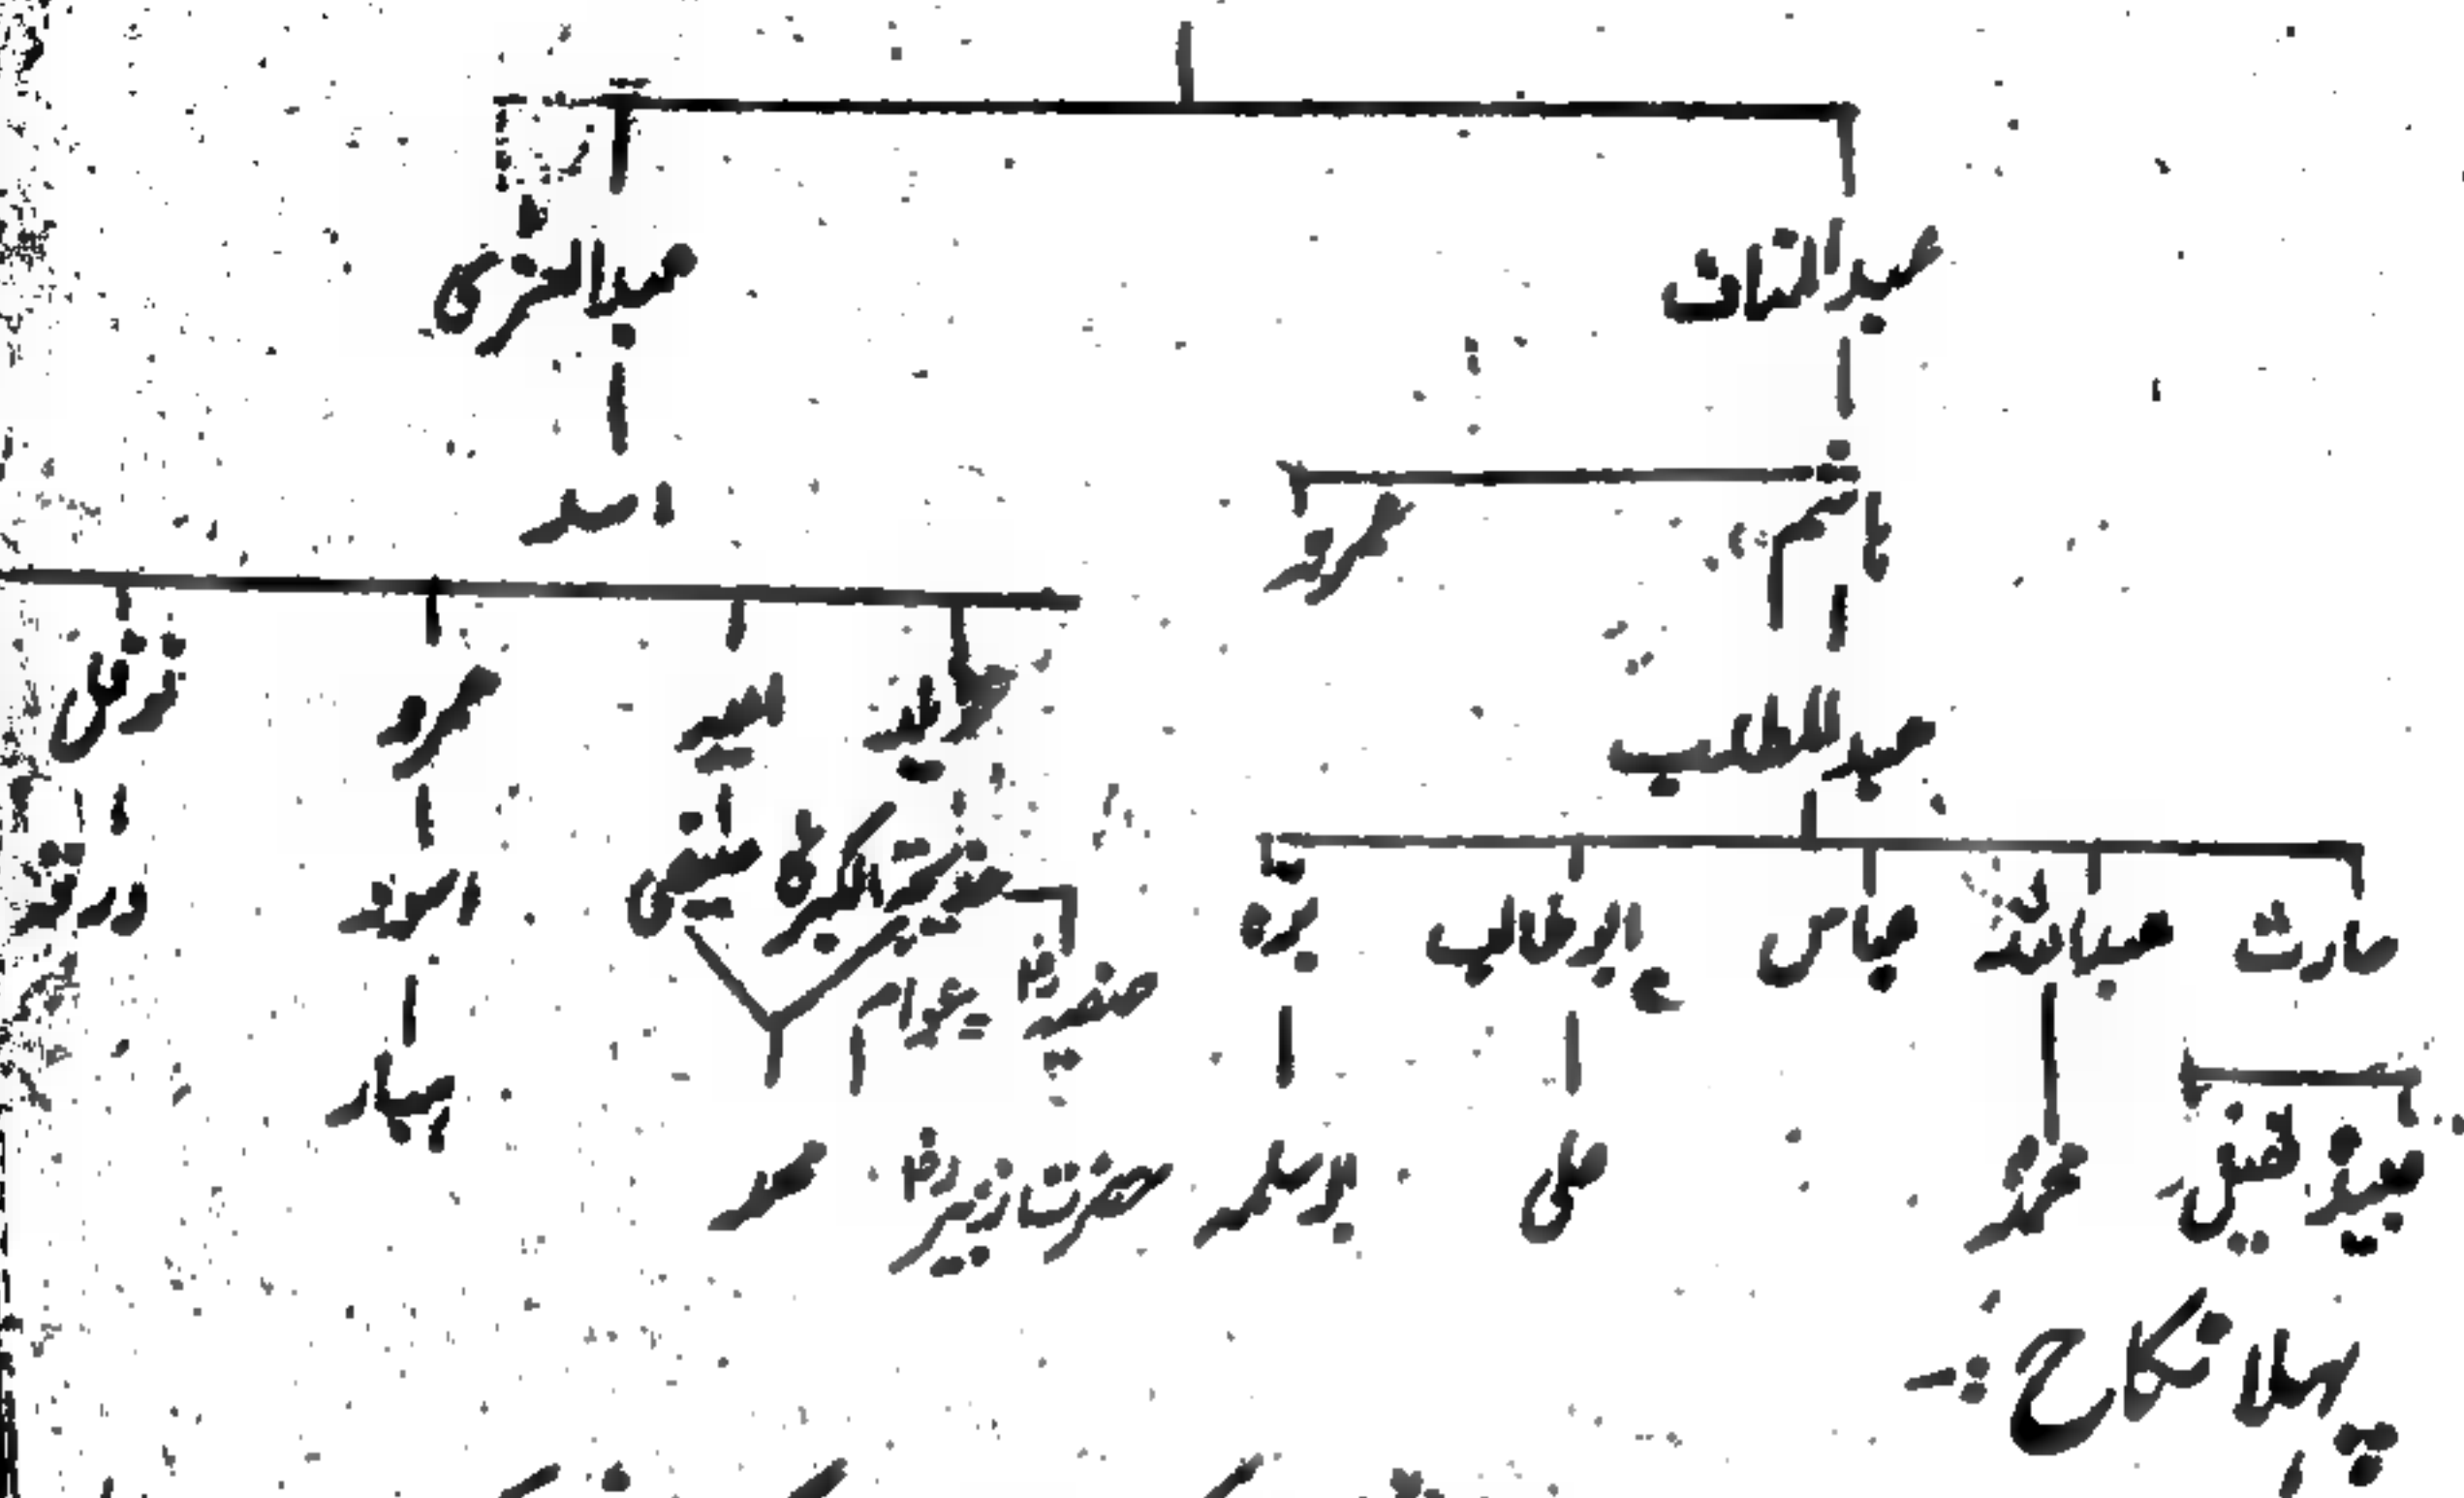 عبدالمناف عبدالعزیٰ
ہاشم عمرو اسد
عبدالمطلب خویلد اسید عمرو نوفل
حارث عبداللہ عباس ابوطالب برہ حضرت خدیجۃ الکبریٰ صیفی اسود ورقہ
صفیہؓ عوام
عبیدہ نفیل محمدؐ علی ابوسلمہ حضرت زبیرؓ محمد ہبار
پہلا نکاح :-